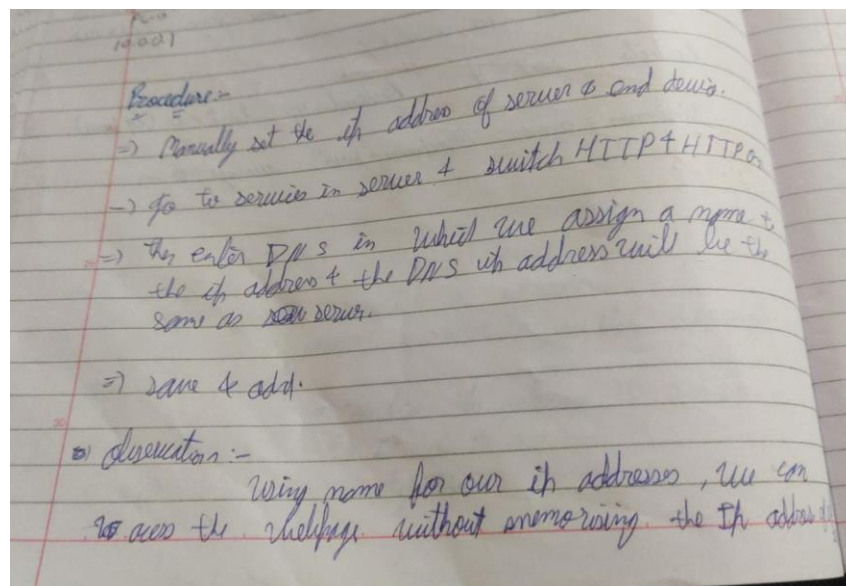 10.0.0.1
Procedure:-
=> Manually set the ip address of server & end devic.
-> Go to servies in server & switch HTTP & HTTP on
=> then enter DNS in which we assign a name to
the ip address & the DNS ip address will be the
same as server.
=> save & add.
Observation:-
Using name for our ip addresses, we can
acess the webpage without memorising the Ip address